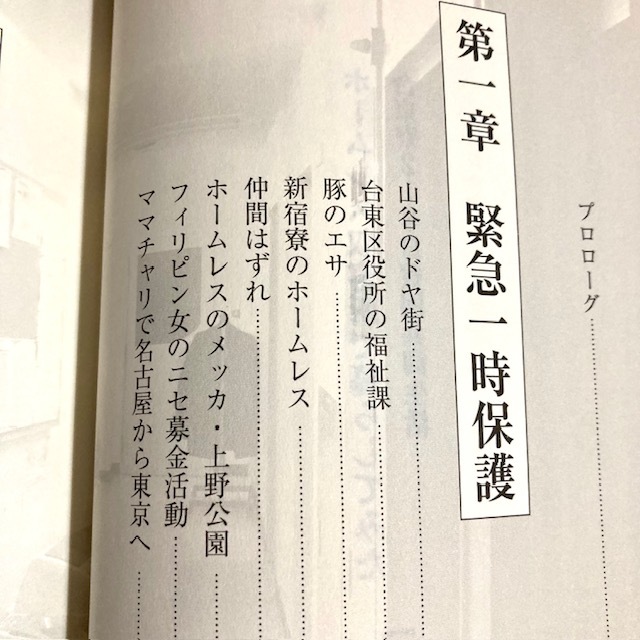 プロローグ
第一章 緊急一時保護
山谷のドヤ街
台東区役所の福祉課
豚のエサ
新宿寮のホームレス
仲間はずれ
ホームレスのメッカ・上野公園
フィリピン女のニセ募金活動
ママチャリで名古屋から東京へ